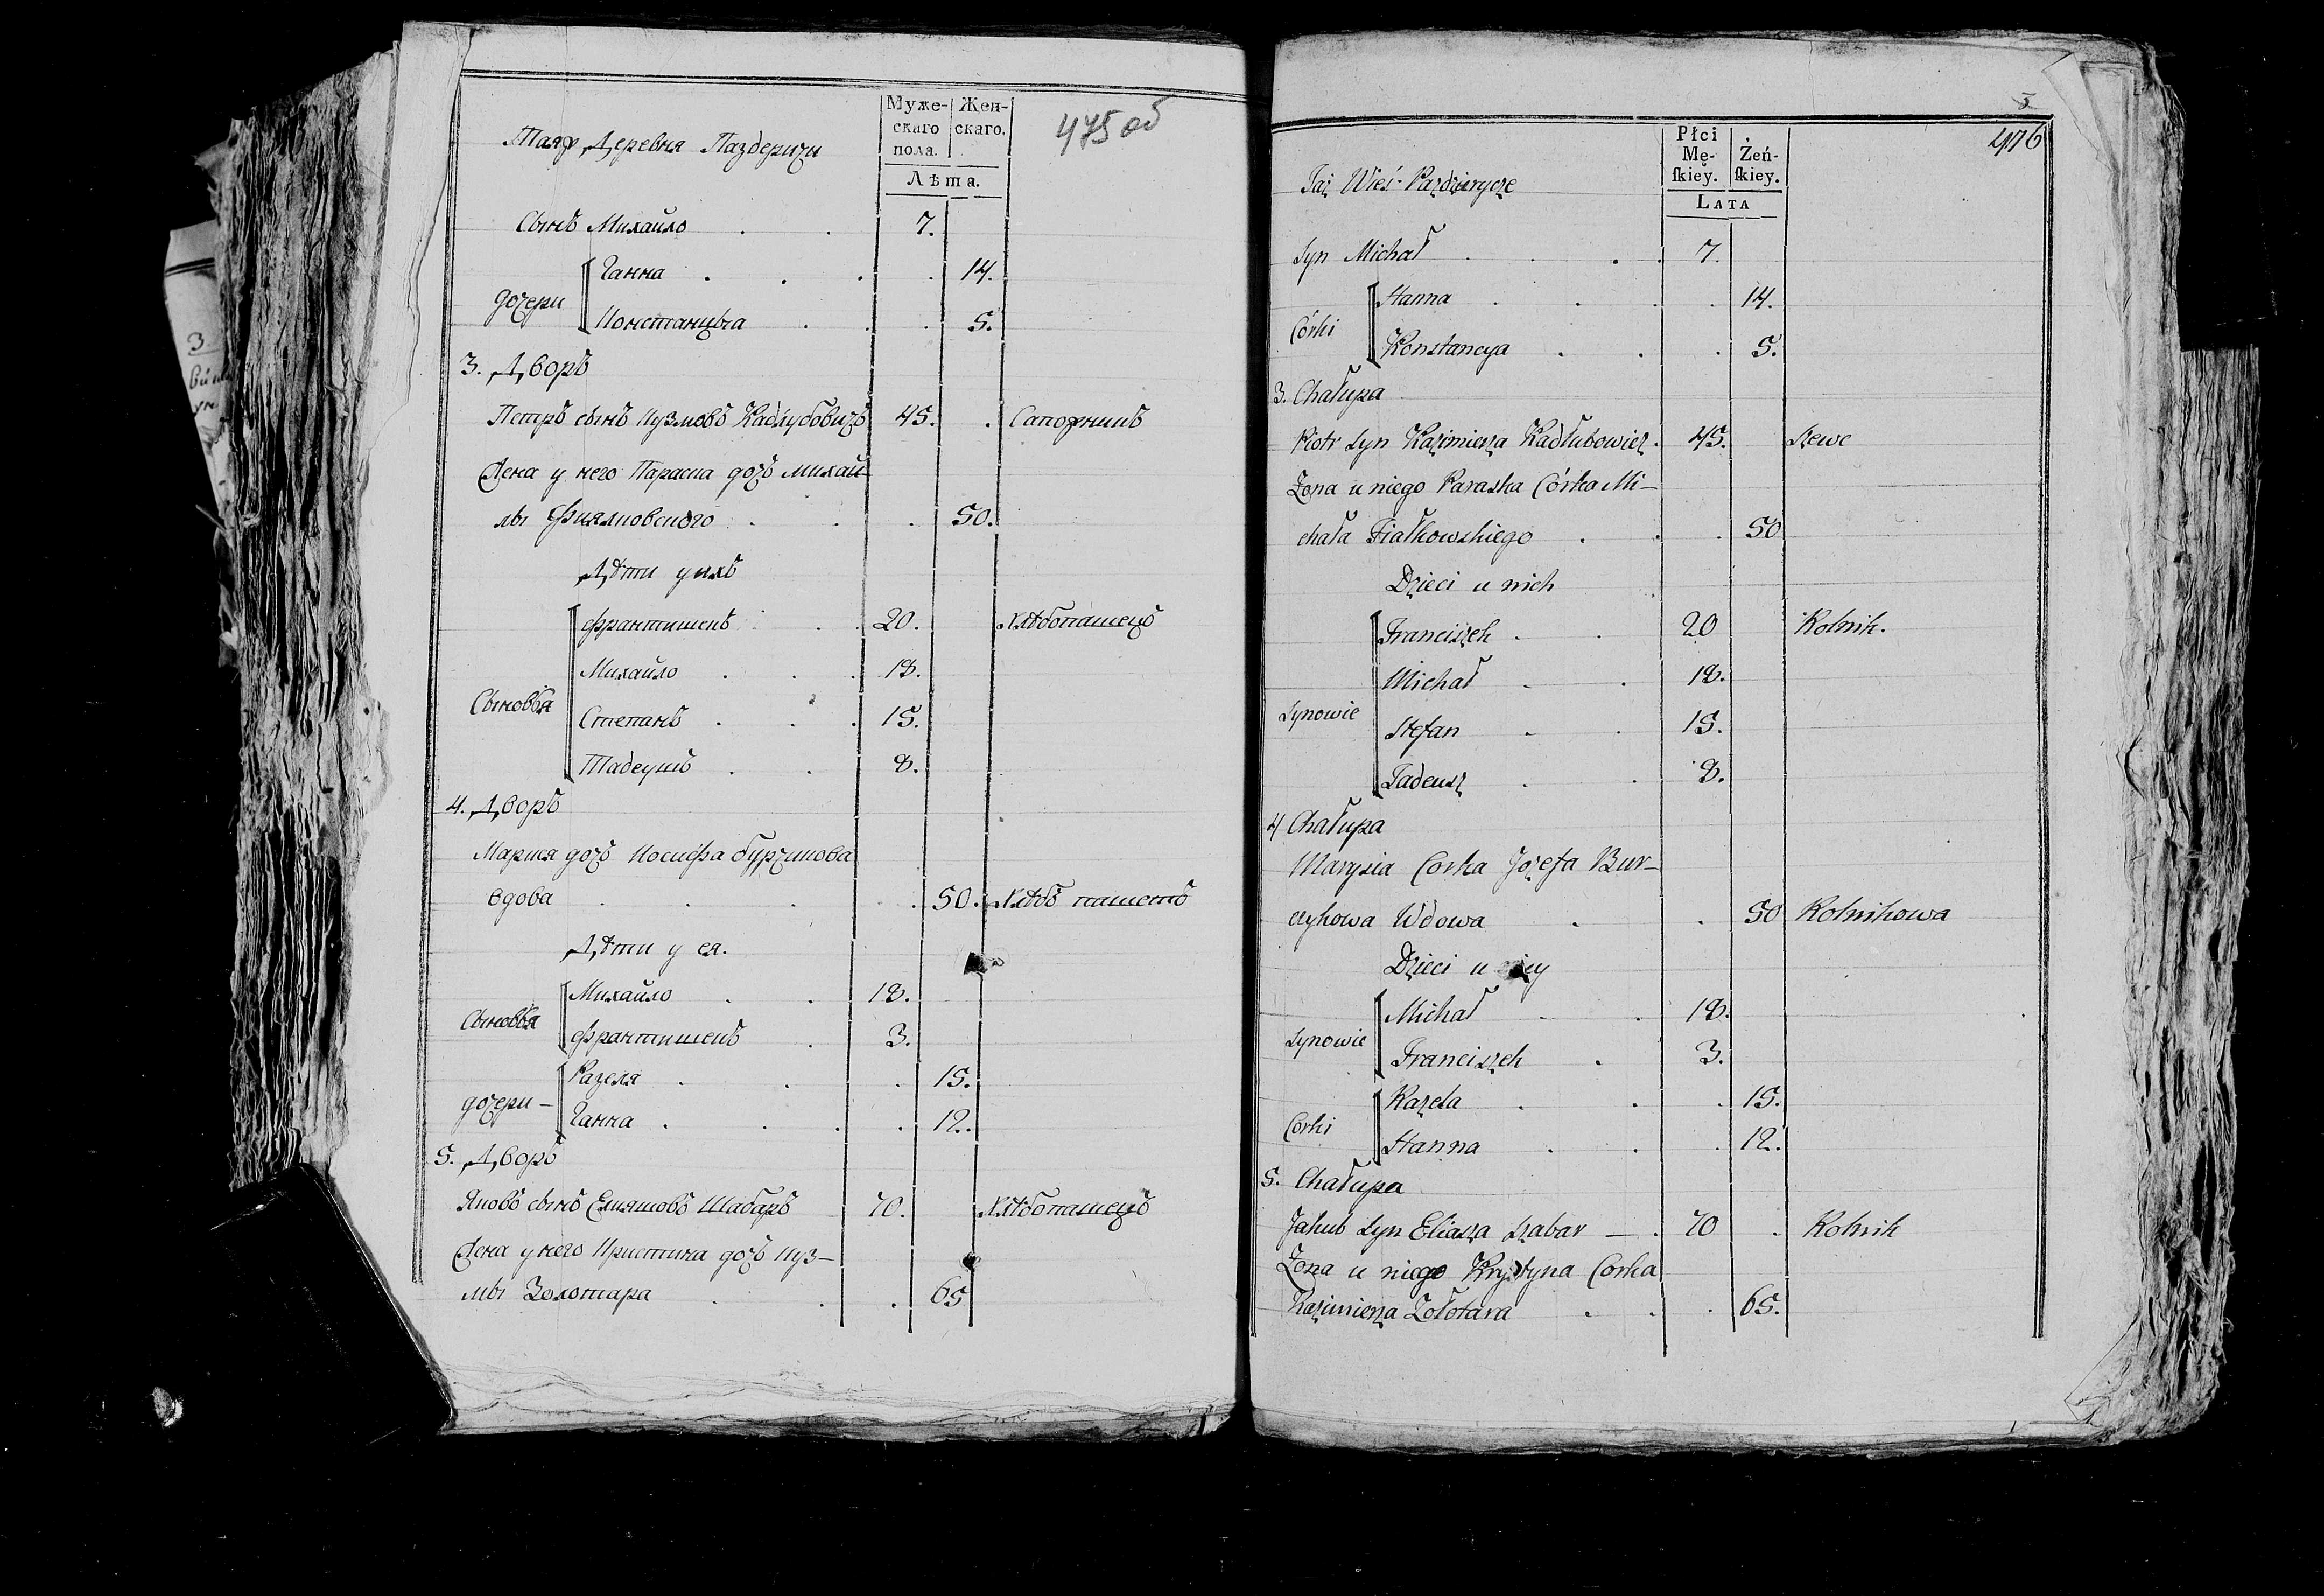 Таяж Деревня Паздеричи
Муже- Жен-
скаго скаго.
пола.
Лѣта.
475 об
Сынъ Михайло 7.
дочери
Ганна 14.
Констанцыа 5.
3. Дворъ
Петръ сынъ Кузмовъ Кадлубовичъ 45. Сапожникъ
Жена у него Параска дочь Михай-
лы Фиялковского 50.
Дѣти у ихъ
Сыновья
Франтишекъ 20. Хлѣбопашецъ
Михайло 18.
Степанъ 15.
Тадеушъ 8.
4. Дворъ
Марися дочь Иосифа Бурчикова
вдова 50. Хлѣбъ пашетъ
Дѣти у ея.
Сыновья
Михайло 18.
Франтишекъ 3.
дочери –
Разеля 15.
Ганна 12.
5. Дворъ
Яковъ сынъ Елияшовъ Шабаръ 70. Хлѣбопашецъ
Жена у него Кристина дочь Куз-
мы Золотара 65
5
476
Taż Wieś Pazdzierycze
Płci
Mę- Żeń-
ſkiey. ſkiey.
LATA
Syn Michał 7.
Córki
Hanna 14.
Konstancya 5.
3. Chałupa
Piotr Syn Kazimierza Kadłubowicz. 45. Szewc
Żona u niego Paraska Córka Mi-
chała Fiałkowskiego 50
Dzieci u nich
Synowie
Franciszek 20 Rolnik.
Michał 18.
Stefan 15.
Tadeusz 8.
4 Chałupa
Marysia Corka Jozefa Bur-
czykowa Wdowa 50 Rolnikowa
Dzieci u niey
Synowie
Michał 18.
Franciszek 3.
Corki
Razela 15.
Hanna 12.
5. Chałupa
Jakub Syn Eliasza Szabar – 70 Rolnik
Żona u niego Krystyna Corka
Kazimierza Zołotara 65.